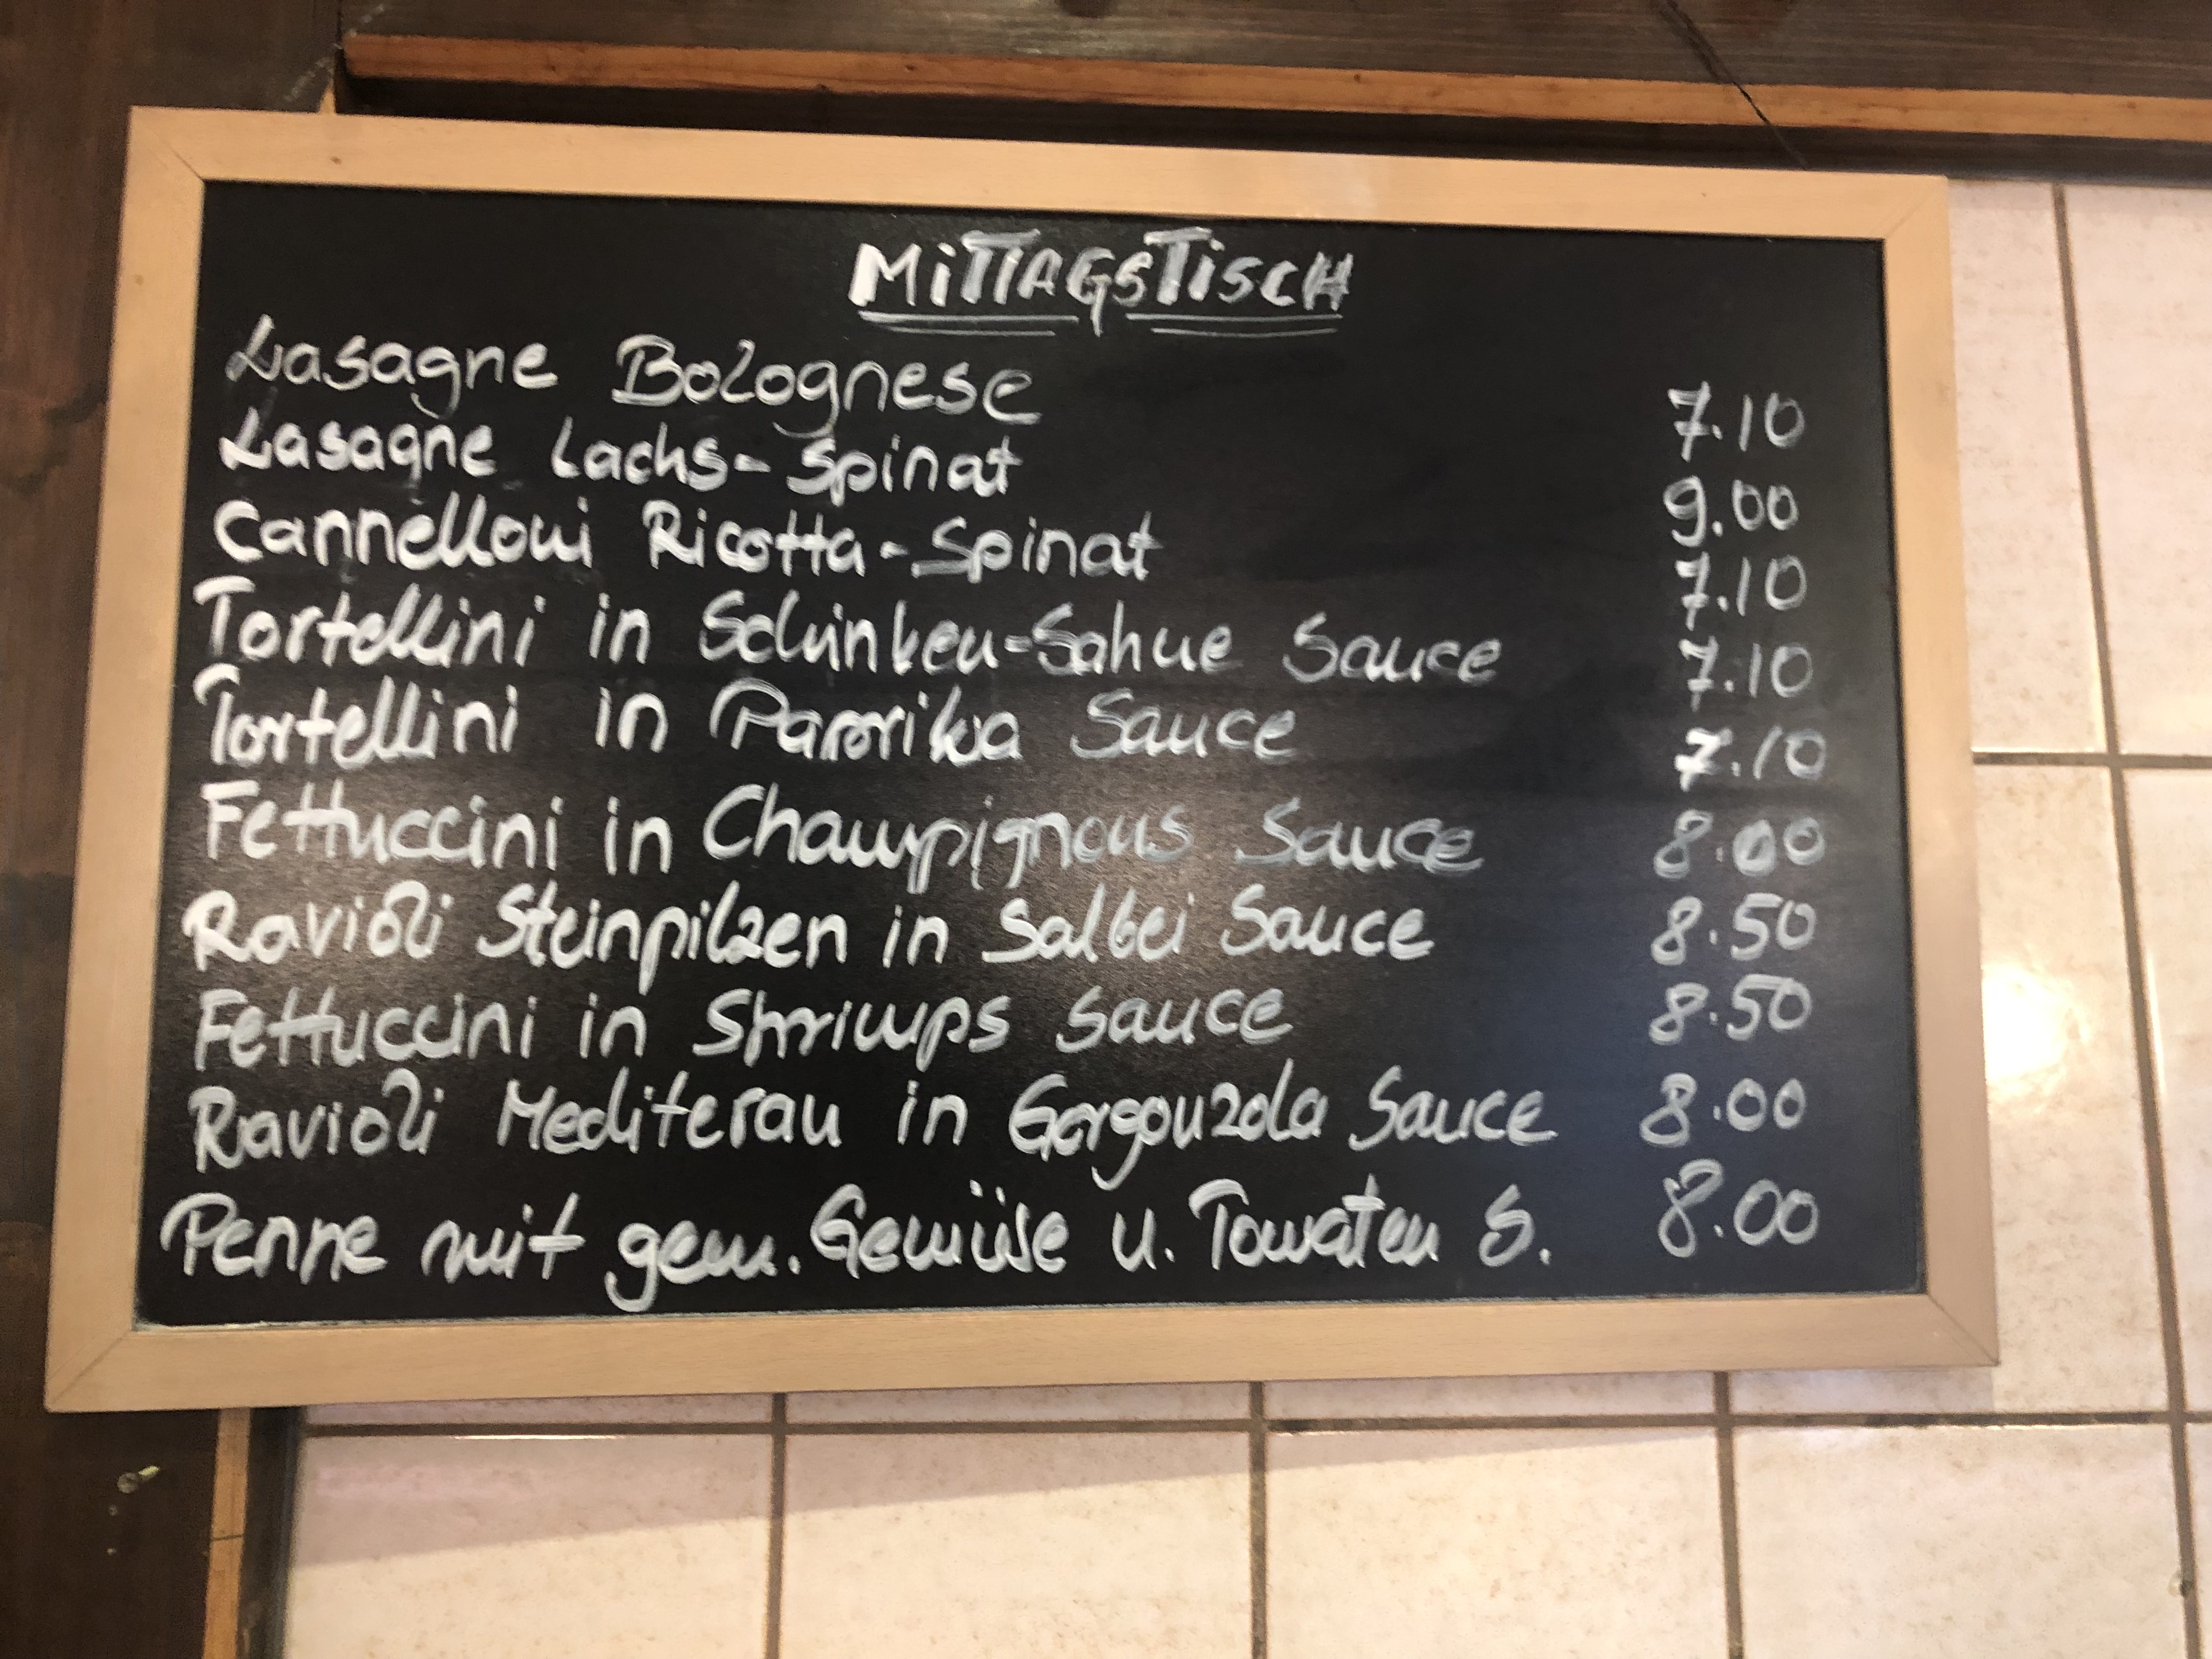 MiTTAGSTISCH
Lasagne Bolognese 7.10
Lasagne Lachs-Spinat 9.00
Cannelloni Ricotta-Spinat 7.10
Tortellini in Schinken-Sahne Sauce 7.10
Tortellini in Paprika Sauce 7.10
Fettuccini in Champignons Sauce 8.00
Ravioli Steinpilzen in Salbei Sauce 8.50
Fettuccini in Shrimps Sauce 8.50
Ravioli Mediteran in Gorgonzola Sauce 8.00
Penne mit gem. Gemüse u. Tomaten S. 8.00